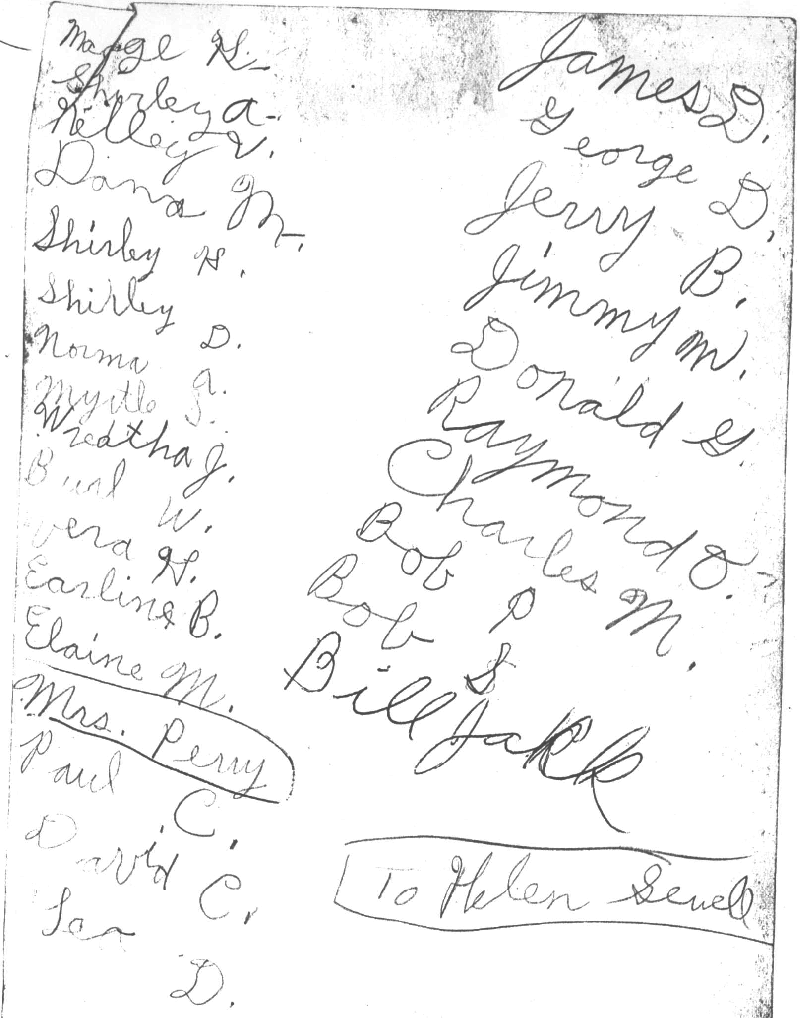 Marge H.
Shirley A.
Kelley V.
Dana M.
Shirley H.
Shirley D.
Norma A.
Myrtle J.
Wreatha J.
Burl W.
Vera H.
Earline B.
Elaine M.
Mrs. Perry
Paul C.
David C.
D.
James D.
George D.
Jerry B.
Jimmy M.
Donald G.
Raymond O.
Charles M.
Bob P
Bob S
Bill
To Helen Sewell